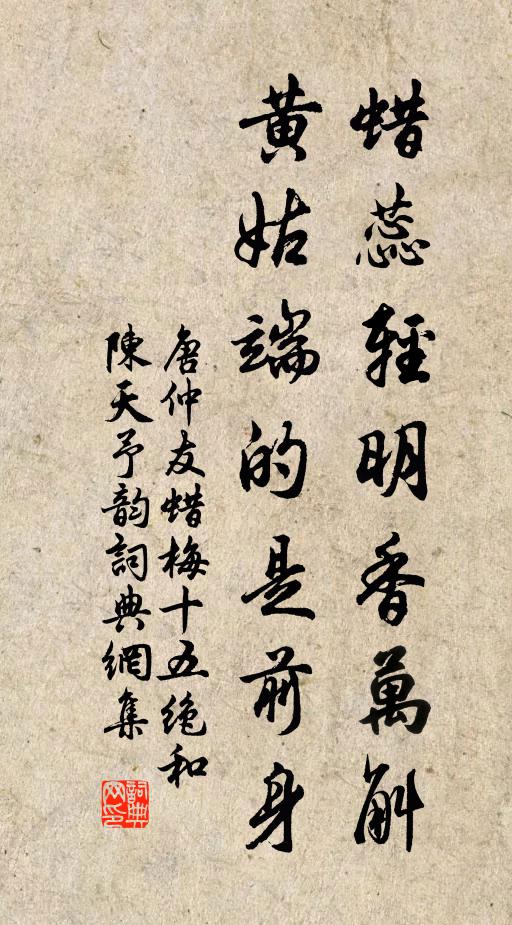 蜡蕊輕明香萬斛
黃姑端的是前身
唐仲友蜡梅十五绝和
陳天予韵詞典網集
詞典网印